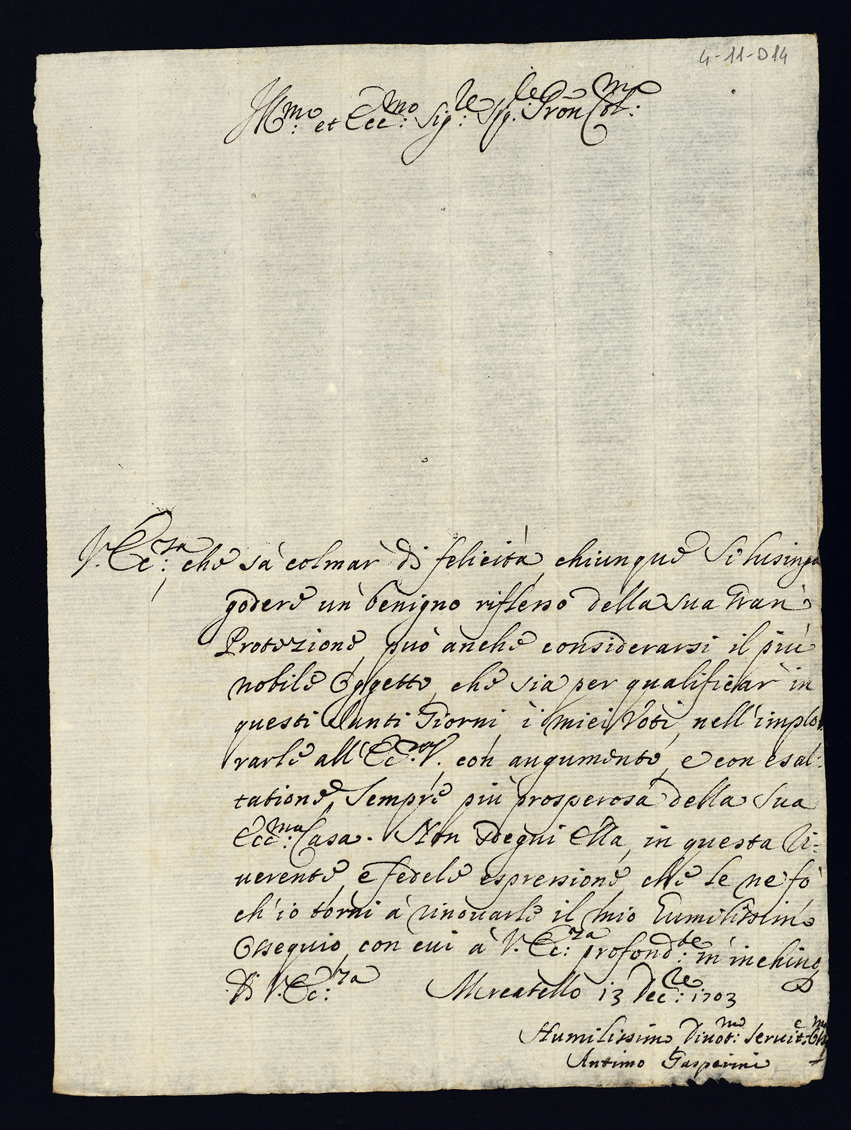 4-11-D14
Ill.mo et Ecc.mo Sig.re Sig.re Pron Col.mo
V. Ecc.za, che sà colmar di felicità chiunque si lusinga
godere un benigno riflesso della sua Gran
Protezione, può anche considerarsi il più
nobile Oggetto, che sia per qualificar in
questi Santi Giorni i miei Voti, nell'implo
rarle all'Ecc.V. con augumento, e con esal:
tatione sempre più prosperosa della Sua
Ecc.ma Casa. Non sdegni Ella, in questa Ri:
uerente, e fedele espressione, che le ne fo
ch'io torni à rinouarle il mio humilissimo
Ossequio, con cui à V. Ecc.za profond.te m'inchino
Di V. Ecc.za
Mercatello 13 Dec.re 1703
Humilissimo Diuot.mo Seruit.e
Antimo Gasparini